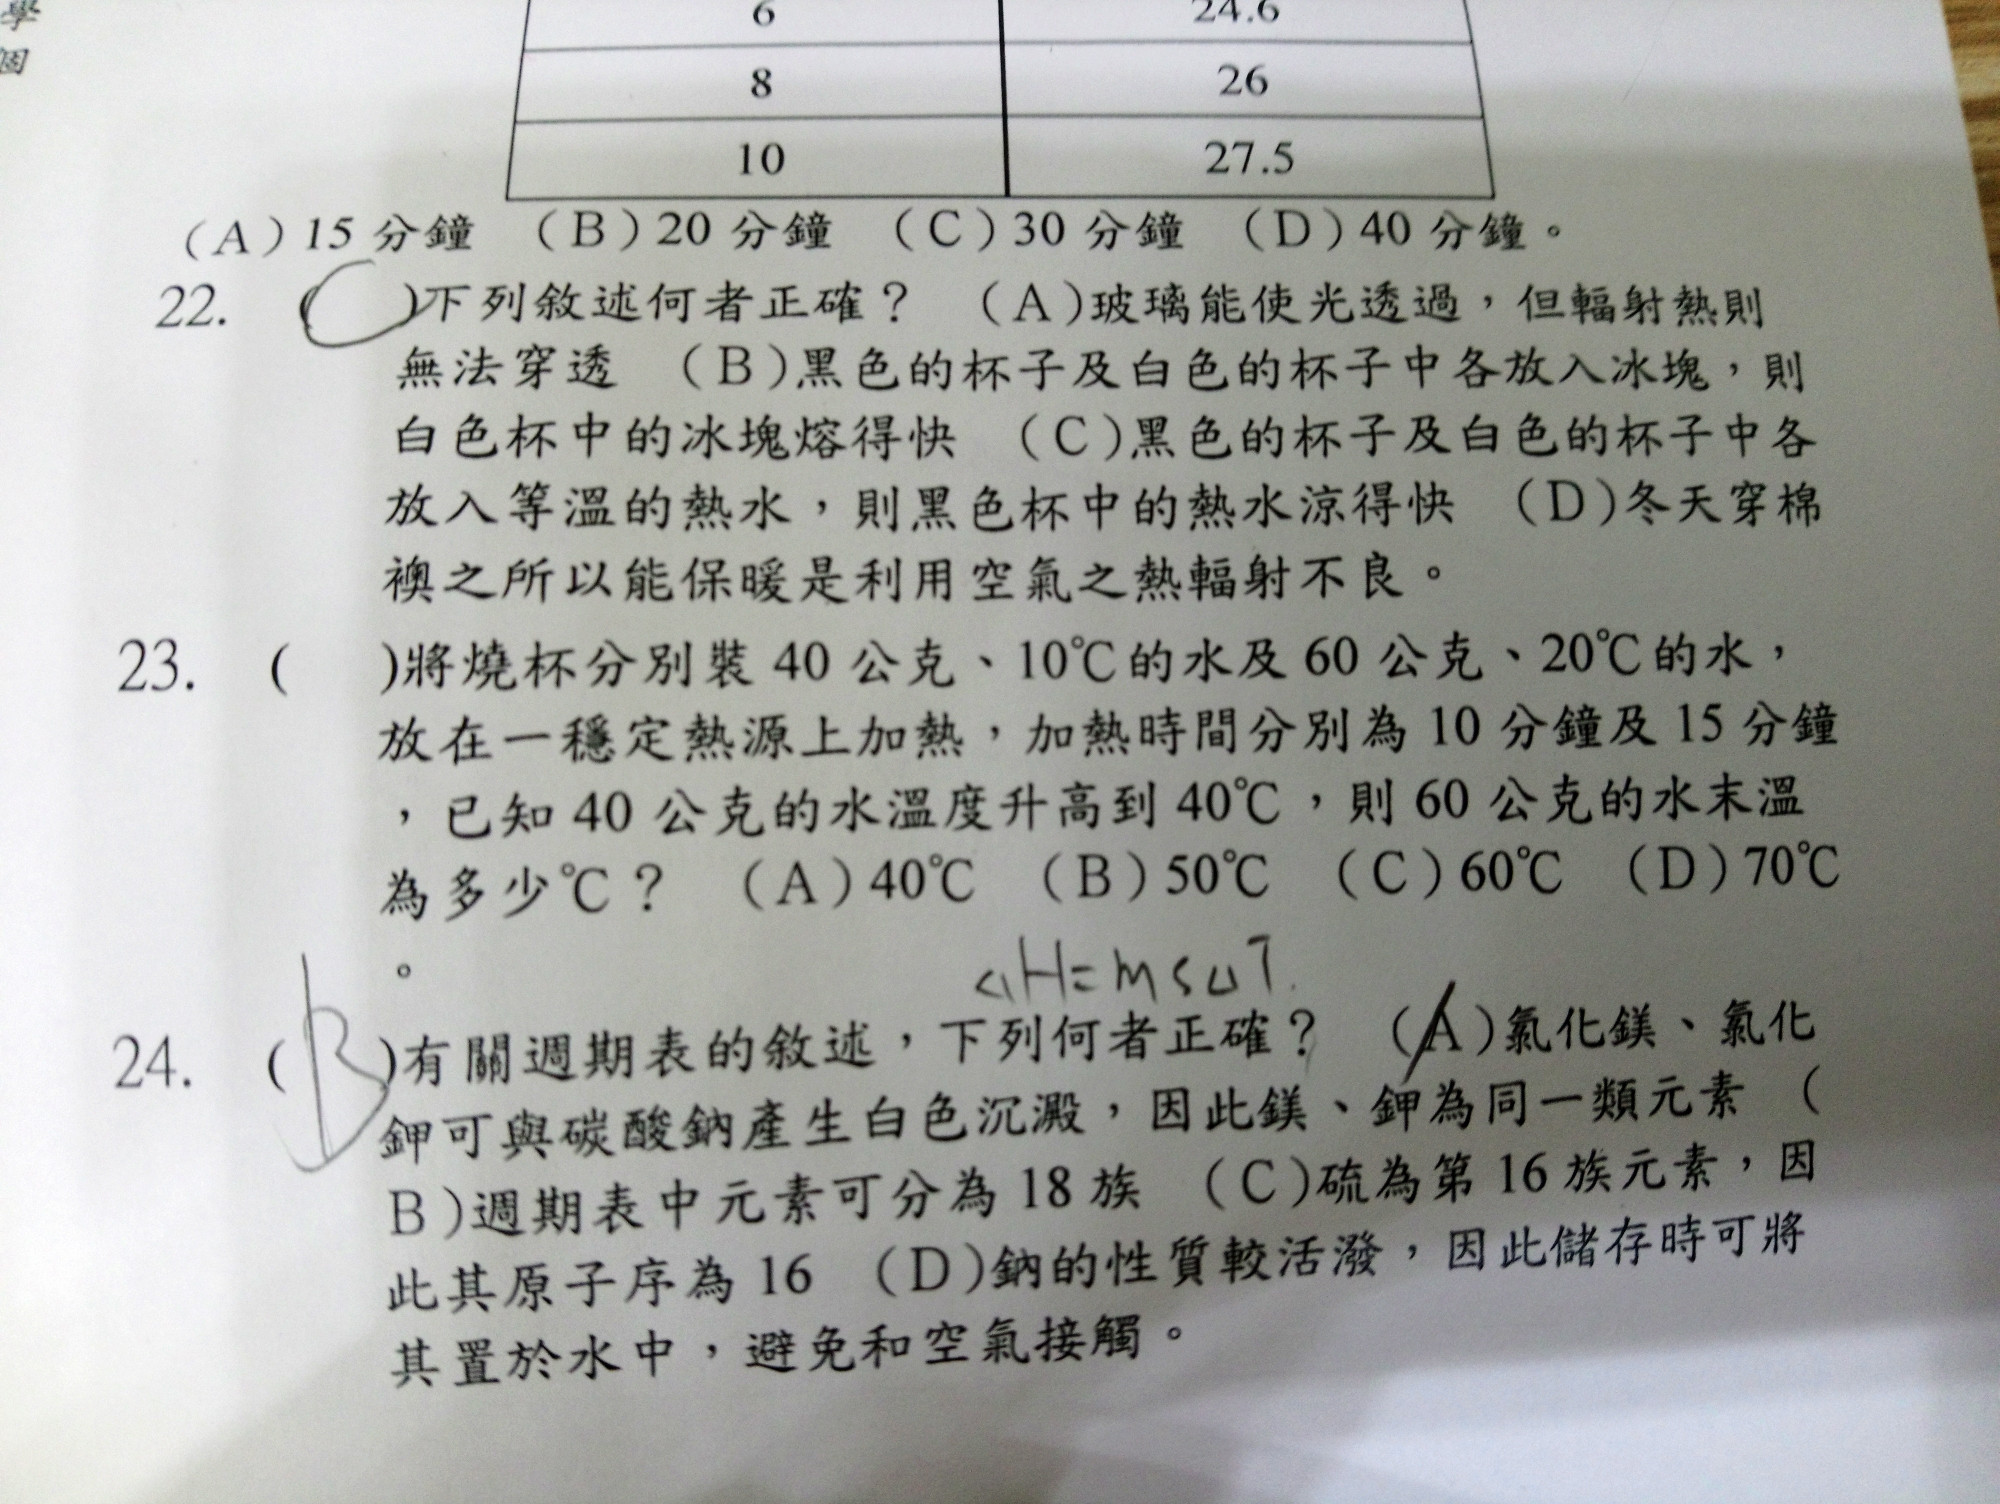 學
個
6 24.6
8 26
10 27.5
(A)15 分鐘 (B)20 分鐘 (C)30 分鐘 (D)40 分鐘。
22. (C)下列敘述何者正確? (A)玻璃能使光透過,但輻射熱則
無法穿透 (B)黑色的杯子及白色的杯子中各放入冰塊,則
白色杯中的冰塊熔得快 (C)黑色的杯子及白色的杯子中各
放入等溫的熱水,則黑色杯中的熱水涼得快 (D)冬天穿棉
襖之所以能保暖是利用空氣之熱輻射不良。
23. ( )將燒杯分別裝 40 公克、10℃的水及 60 公克、20℃的水,
放在一穩定熱源上加熱,加熱時間分別為 10 分鐘及 15 分鐘
,已知 40 公克的水溫度升高到 40℃,則 60 公克的水末溫
為多少℃? (A)40℃ (B)50℃ (C)60℃ (D)70℃
。
△H=ms△T
24. (B)有關週期表的敘述,下列何者正確? (A)氯化鎂、氯化
鉀可與碳酸鈉產生白色沉澱,因此鎂、鉀為同一類元素 (
B)週期表中元素可分為 18 族 (C)硫為第 16 族元素,因
此其原子序為 16 (D)鈉的性質較活潑,因此儲存時可將
其置於水中,避免和空氣接觸。